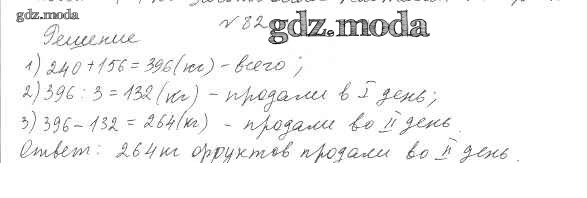 gdz.moda
№ 82
gdz.moda
Решение
1) 240 + 156 = 396 (кг) - всего;
2) 396 : 3 = 132 (кг) - продали в I день;
3) 396 - 132 = 264 (кг) - продали во II день.
Ответ: 264 кг фруктов продали во II день.